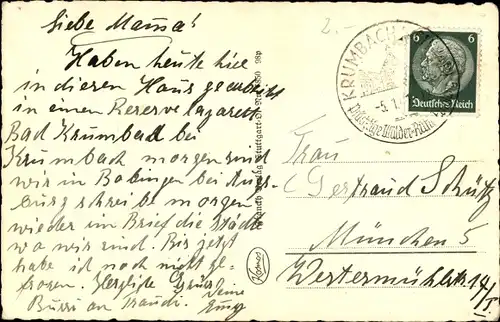 Liebe Mama!
Haben heute hier
in diesen Haus gearbeitet
in einen Reservelazarett
Bad Krumbad bei
Krumbach morgen sind
wir in Bobingen bei Augs-
burg schreibe morgen
wieder im Brief die Städte
wo wir sind. Bis jetzt
habe ich noch nicht ge-
froren. Herzliche Grüße
Bussi an Traudi. Deine
2.-
KRUMBACH
5.1.
6 6
Deutsches Reich
Frau
Gertraud Schütz
München 5
Westermühlstr 14/I
Kosmos